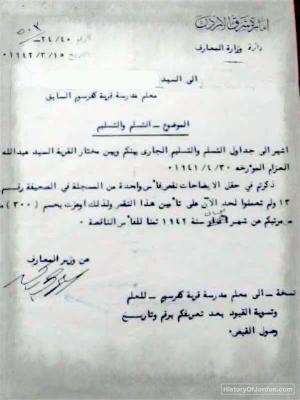 امارة شرق الاردن
دائرة وزارة المعارف
الرقم ٢٤/٤٠
التاريخ ١٩٤٢/٣/١٥
٥٠٣
الى السيد
معلم مدرسة قرية كفرسوم السابق
الموضوع - التسلم والتسليم
اشير الى جداول التسلم والتسليم الجارى بينكم وبين مختار القرية السيد عبدالله
العزام المؤرخه ١٩٤١/٤/٣٠
ذكرتم في حقل الايضاحات نقص فأس واحدة من المسجلة في الصحيفة رقم
١٣ ولم تعملوا لحد الآن على تأمين هذا النقص ولذلك اوعزت بحسم (٣٠٠) م
من مرتبكم عن شهر سنة ١٩٤٢ ثمنا للفأس الناقصة ٠
عن وزير المعارف
نسخة - الى معلم مدرسة قرية كفرسوم - للعلم
وتسوية القيود بعد تعريفكم برقم وتاريخ
وصول القبض.
HistoryOfJordan.com